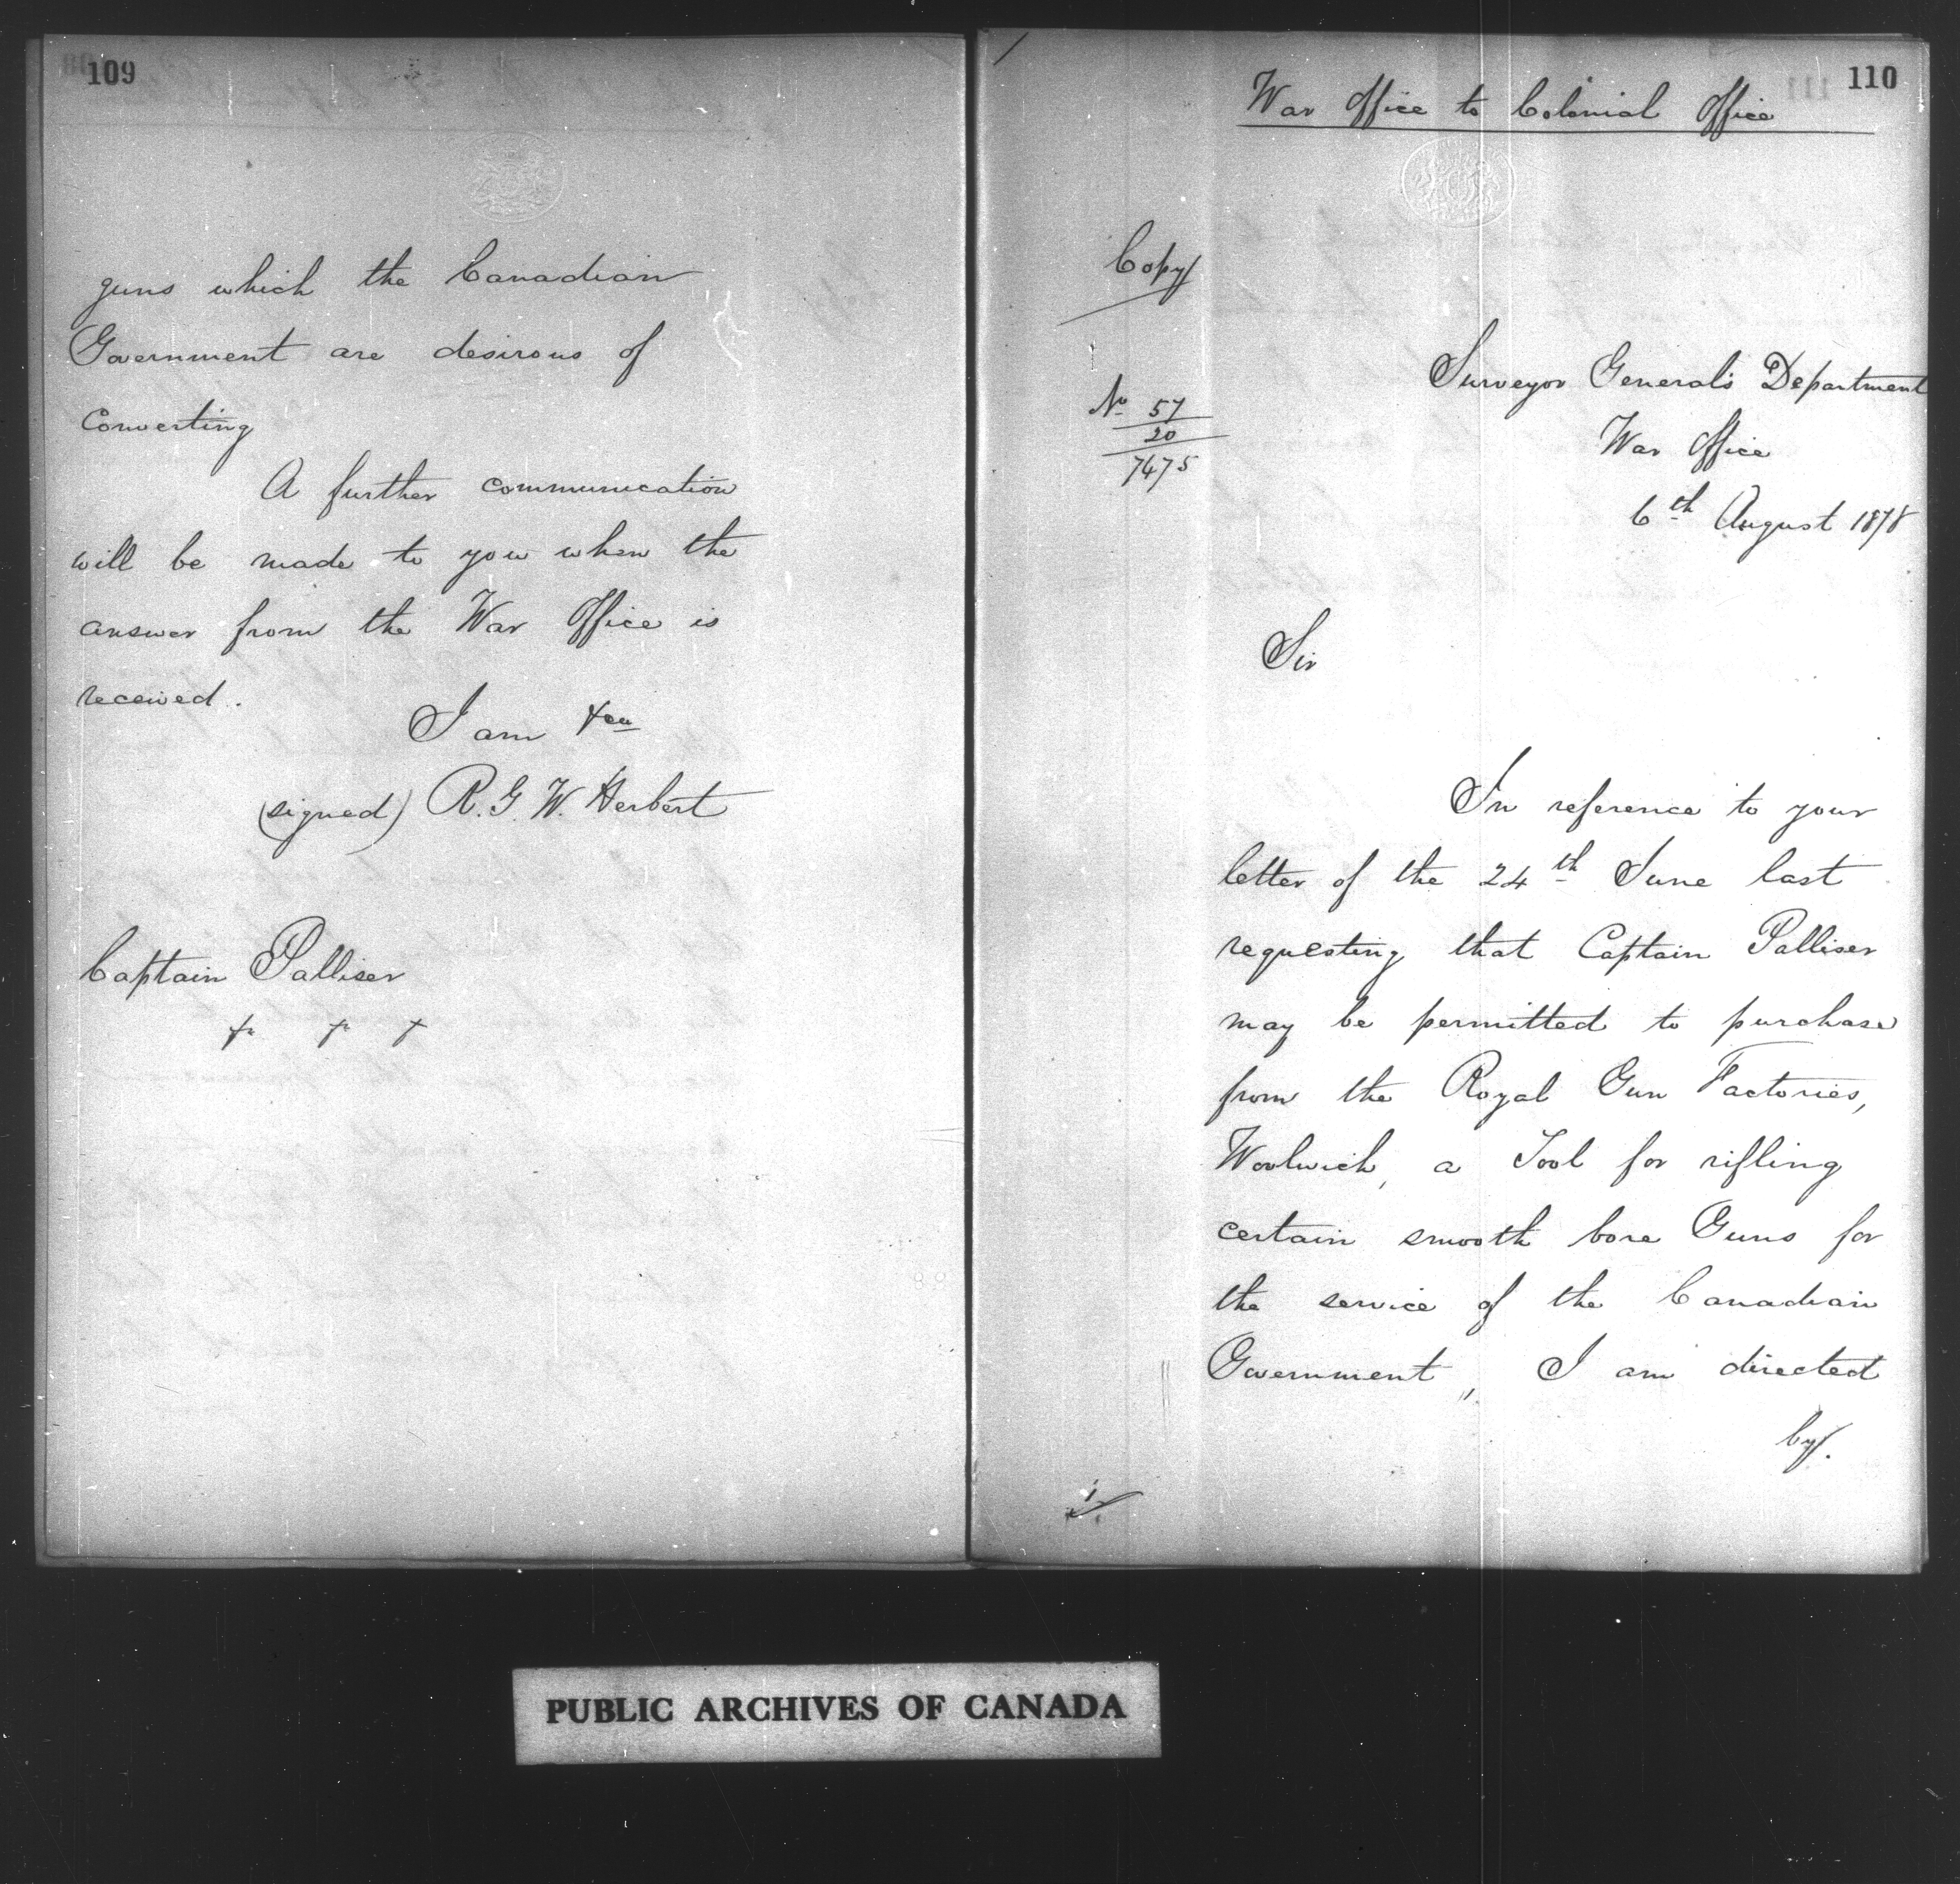 109
guns which the Canadian
Government are desirous of
Converting
A further communication
will be made to you when the
answer from the War Office is
received.
I am &ca
(signed) R. G. W. Herbert
Captain Palliser
&c &c &
110
War Office to Colonial Office
Copy
No 57
20
7475
Surveyor General's Department
War Office
6th August 1878
Sir
In reference to your
letter of the 24th June last
requesting that Captain Palliser
may be permitted to purchase
from the Royal Gun Factories,
Woolwich, a Tool for rifling
certain smooth bore Guns for
the service of the Canadian
Government, I am directed
by.
PUBLIC ARCHIVES OF CANADA